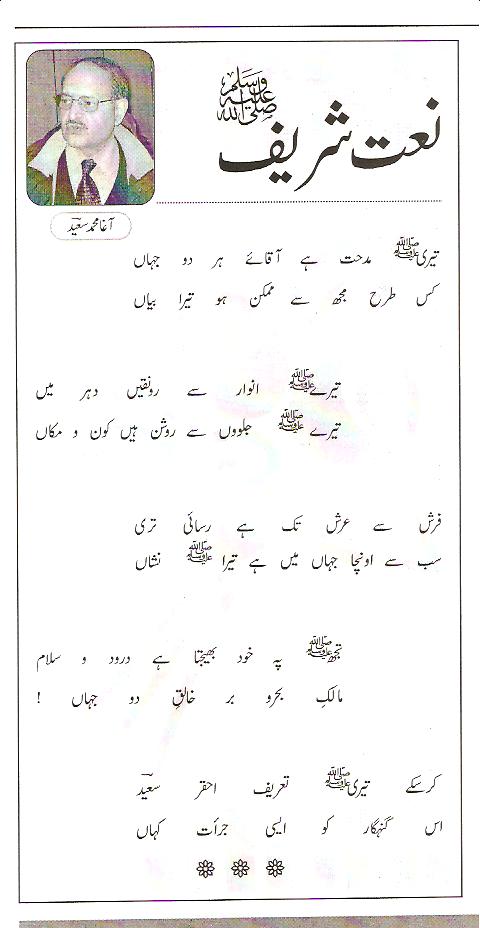 نعت شریف ﷺ
آغا محمد سعیدؔ
تیریﷺ مدحت ہے آقائے ہر دو جہاں
کس طرح مجھ سے ممکن ہو تیرا بیاں
تیرےﷺ انوار سے رونقیں دہر میں
تیرےﷺ جلووں سے روشن ہیں کون و مکاں
فرش سے عرش تک ہے رسائی تری
سب سے اونچا جہاں میں ہے تیراﷺ نشاں
تجھﷺ پہ خود بھیجتا ہے درود و سلام
مالکِ بحرو بر خالقِ دو جہاں !
کرسکے تیریﷺ تعریف احقر سعیدؔ
اس گنہگار کو ایسی جرأت کہاں